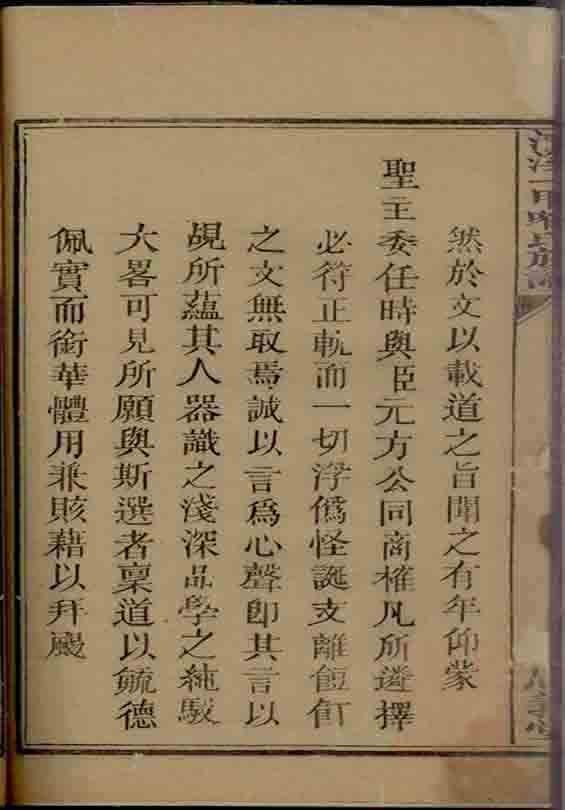 然於文以載道之旨聞之有年仰蒙
聖主委任時與臣元方公同商榷凡所遴擇
必符正軌而一切浮僞怪誕支離飣
之文無取焉誠以言爲心聲卽其言以
覘所蘊其人器識之淺深品學之純駁
大畧可見所願與斯選者稟道以毓德
佩實而銜華體用兼賅藉以拜颺